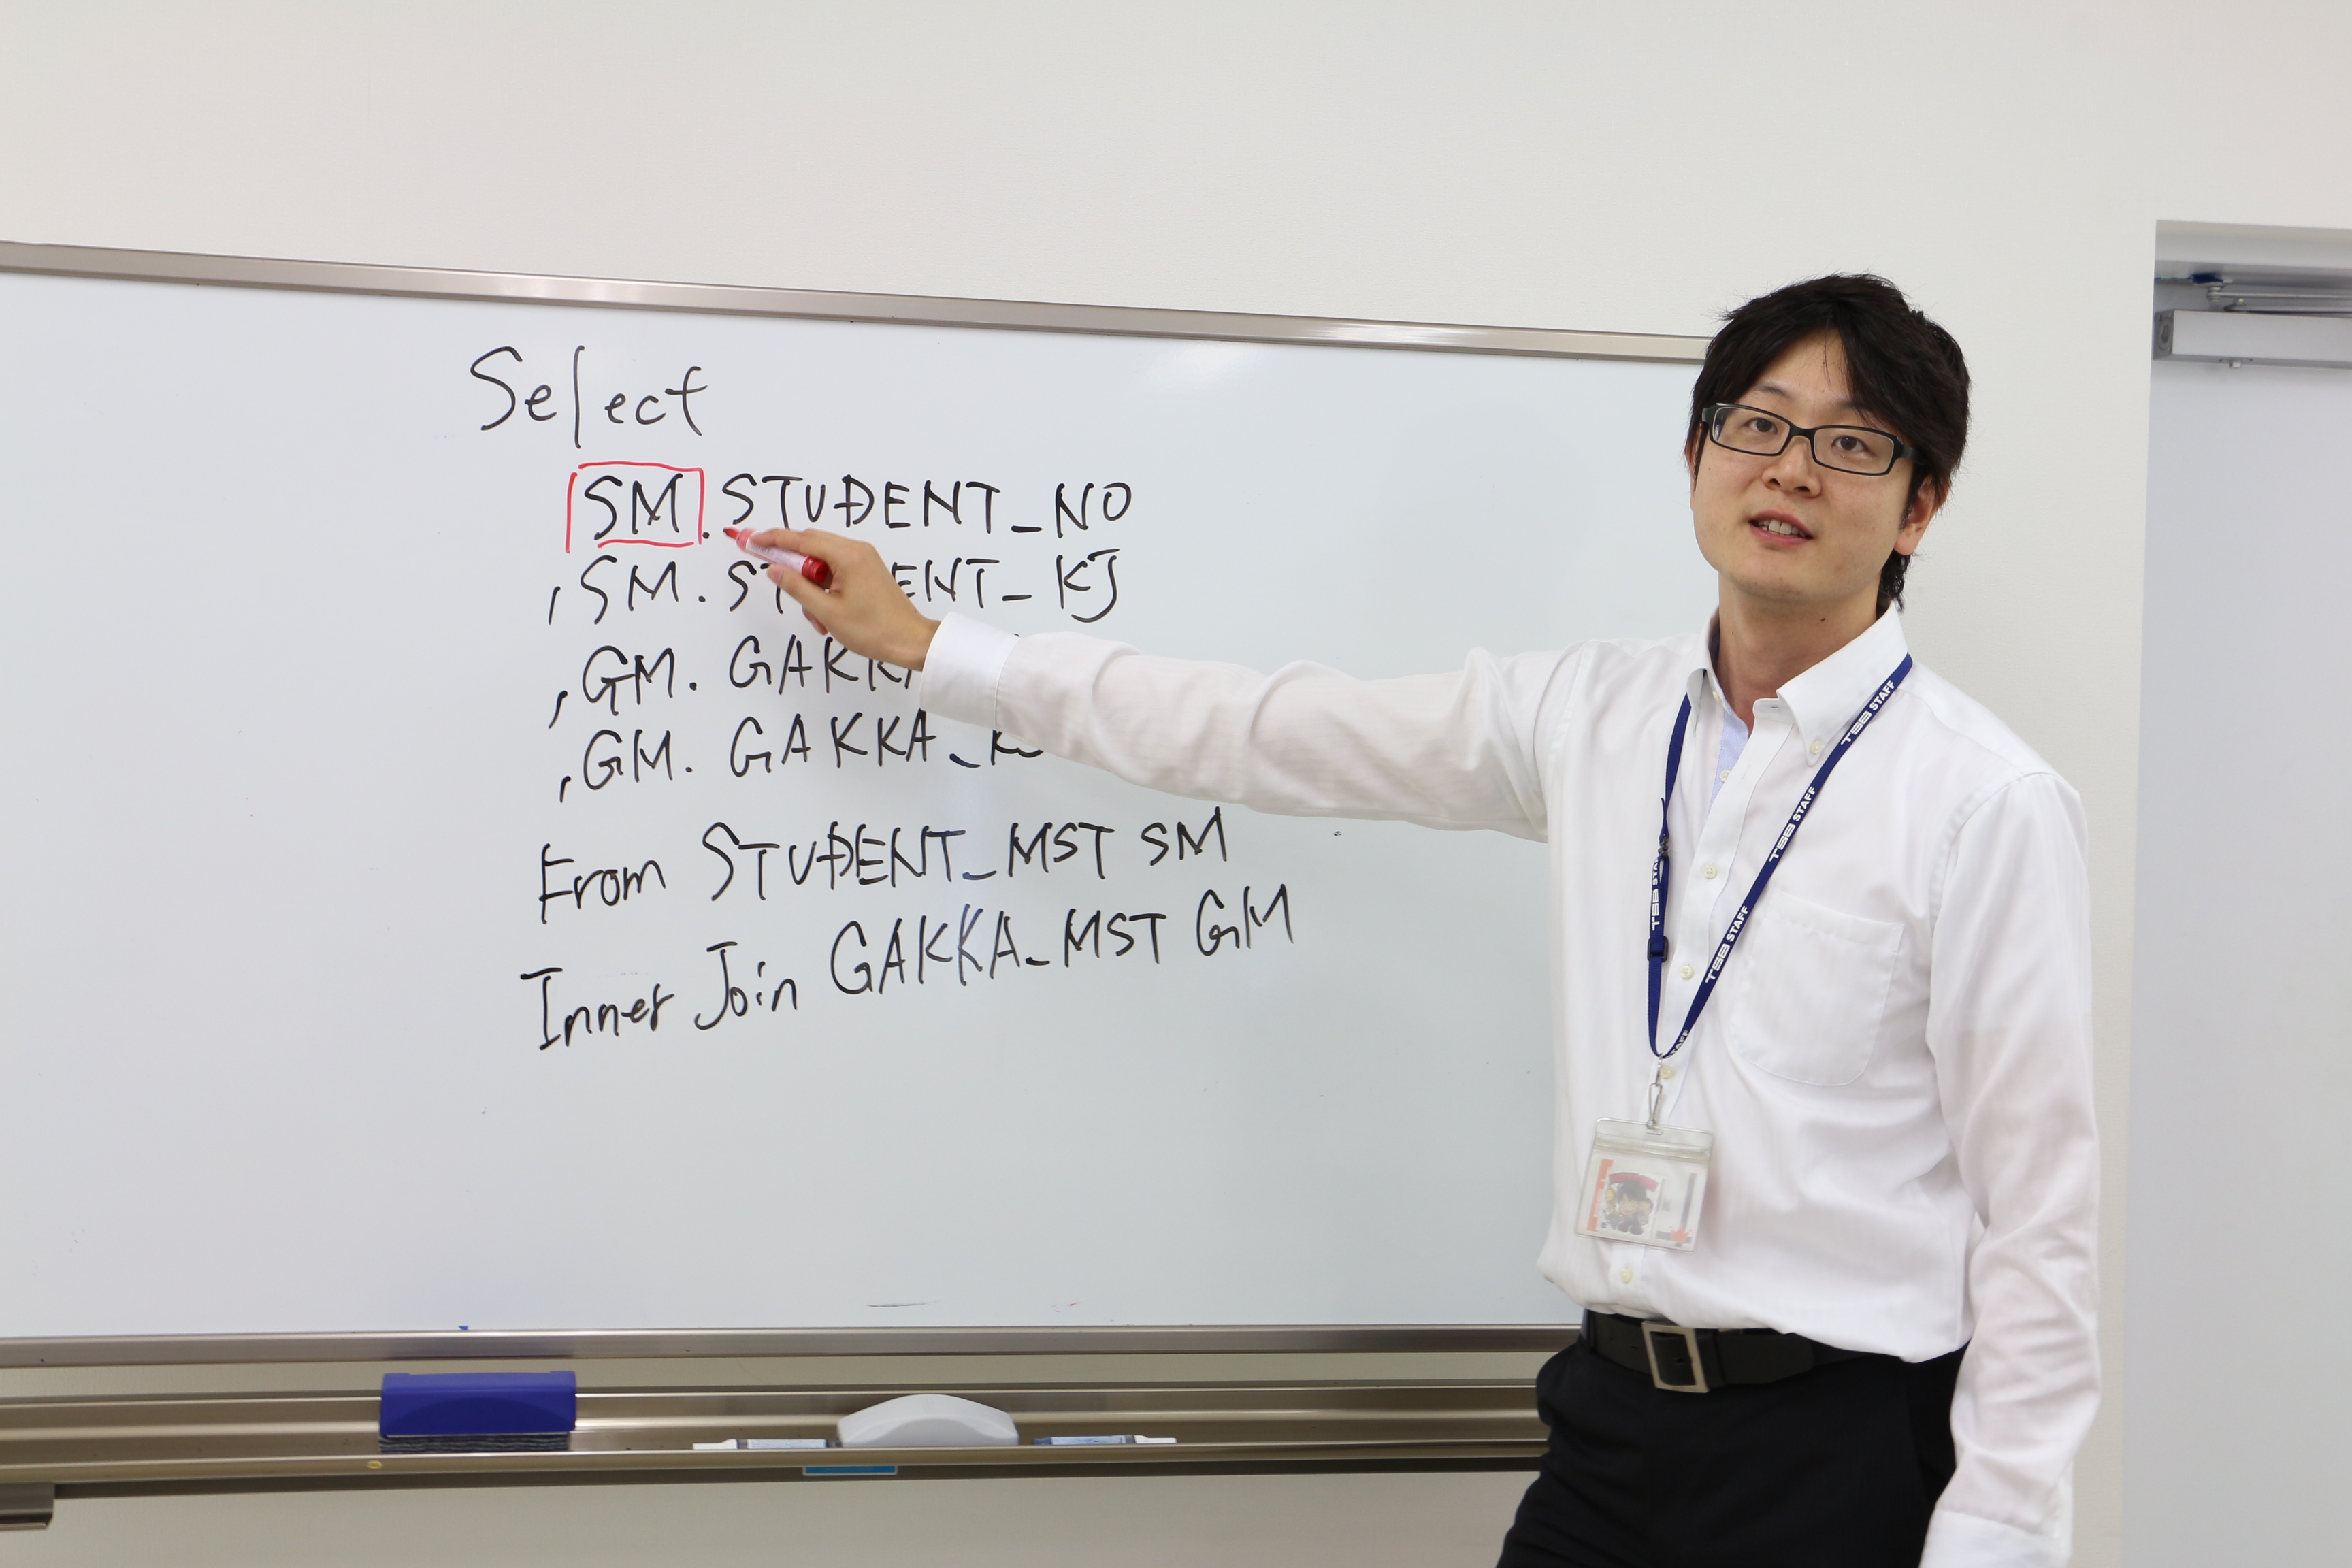 Select
SM.STUDENT_NO
,SM.STUDENT_KJ
,GM.GAKKA
,GM.GAKKA_K
From STUDENT_MST SM
Inner Join GAKKA_MST GM
TSB STAFF
TSB STAFF
TSB STAFF
TSB STAFF
STAFF